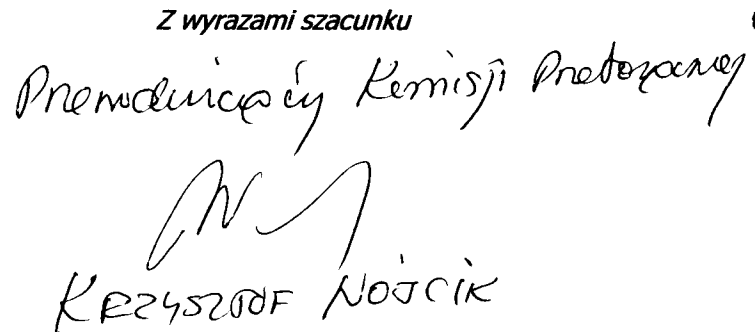 Z wyrazami szacunku
Przewodniczący Komisji Przetargowej
KRZYSZTOF WÓJCIK